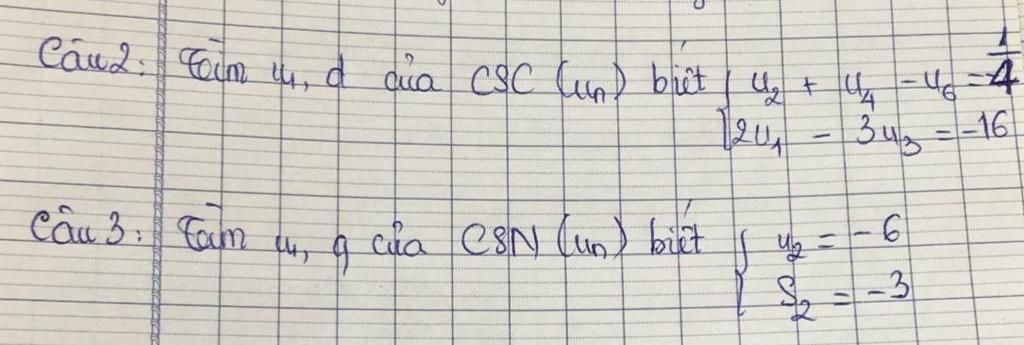 Câu 2: Tìm u₁, d của CSC (uₙ) biết { u₂ + u₄ - u₆ = -4
2u₁ - 3u₃ = -16
Câu 3: Tìm u₁, q của CSN (uₙ) biết { u₂ = -6
S₂ = -3